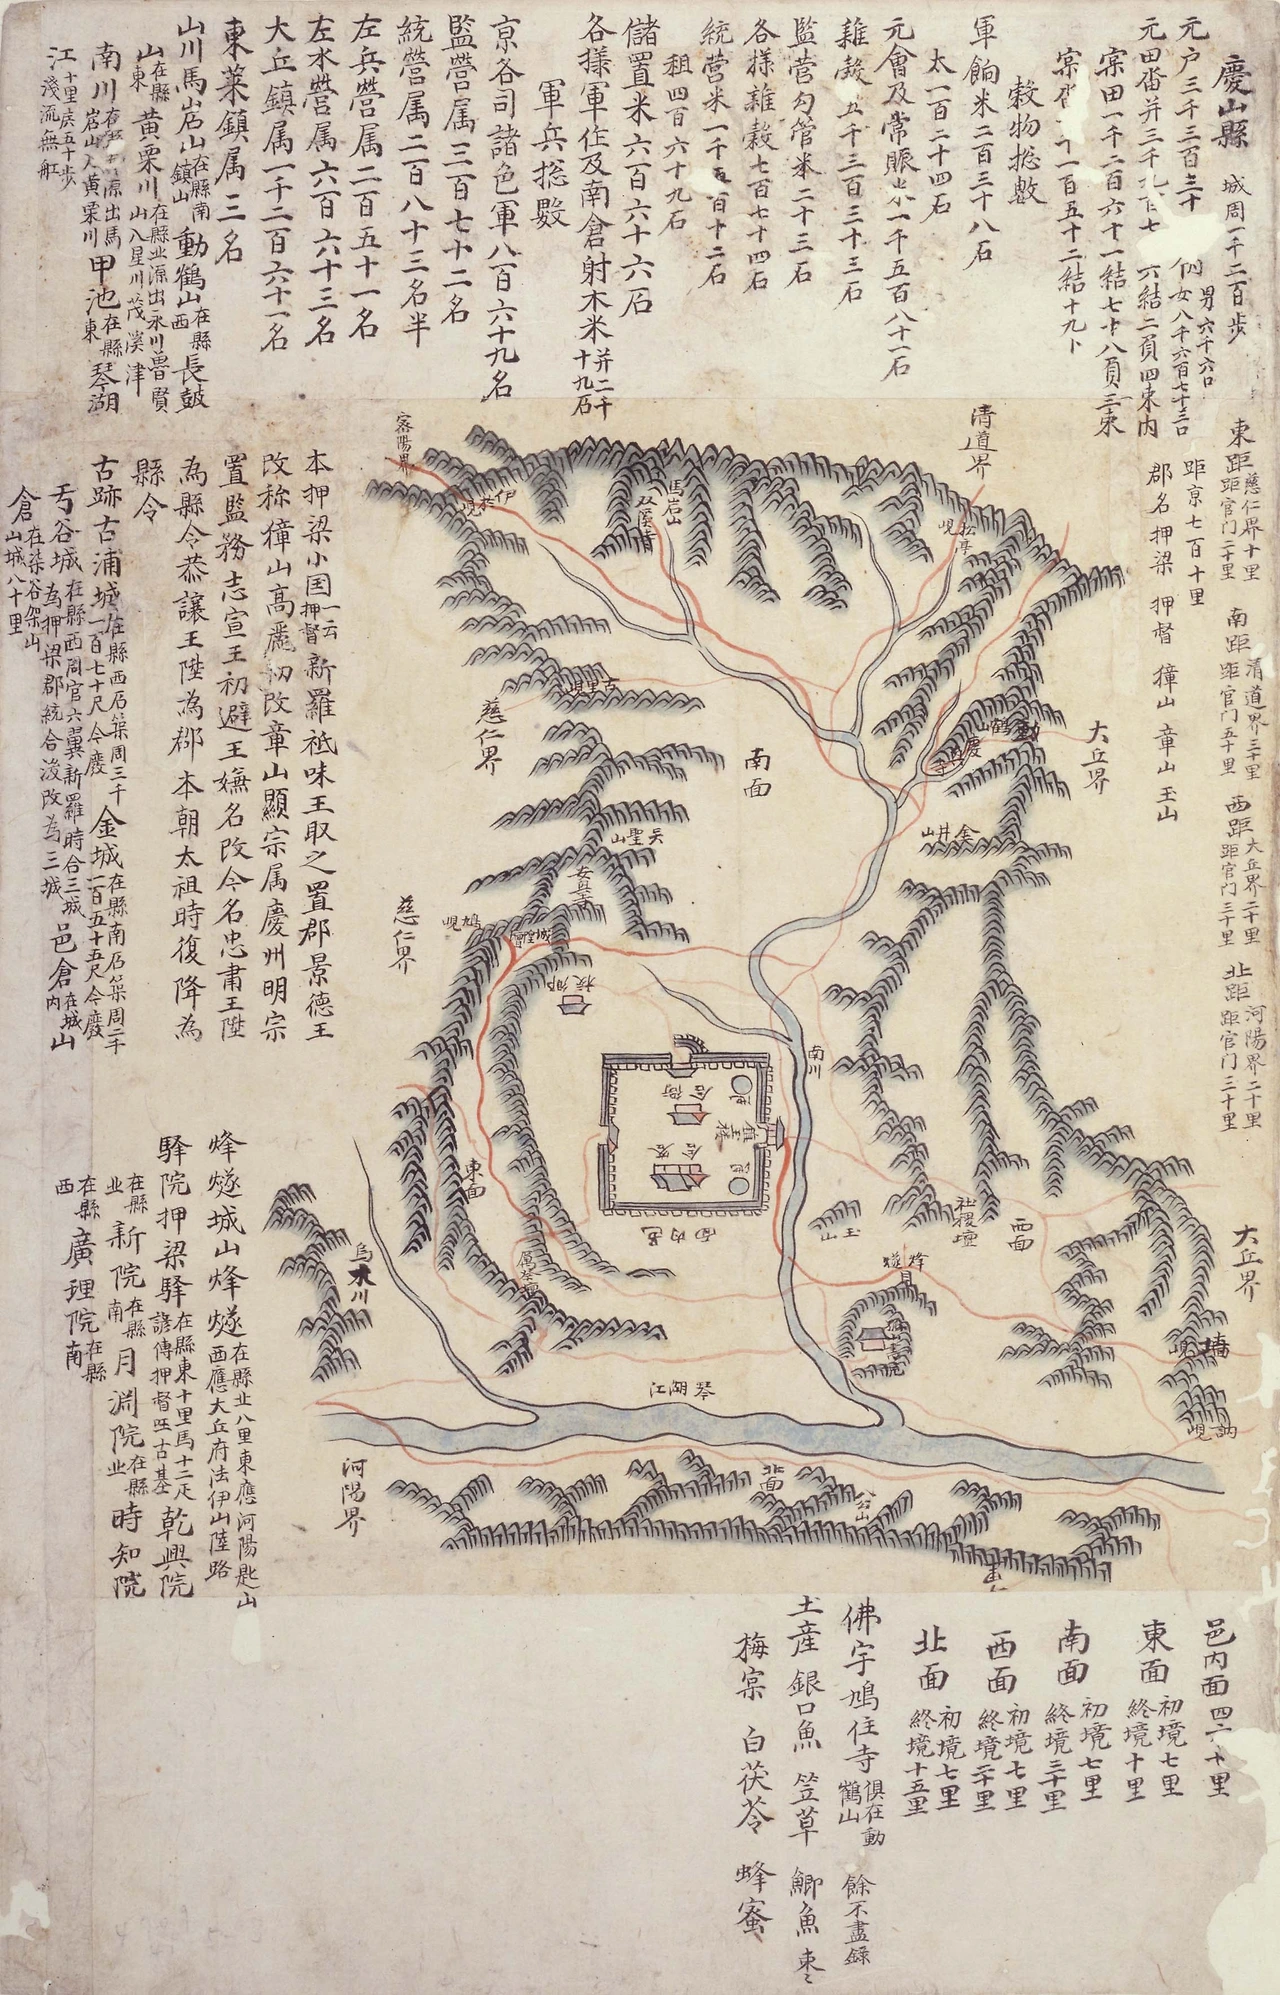 慶山縣 城周一千二百步
元户三千三百三十 男六千六口
女八千六百七十三口
元田畓并三千九百七 六結二負四束内
宲田一千二百六十一結七十八負三束
宲畓 一百五十二結十九卜
穀物捴數
軍餉米二百三十八石
太一百二十四石
元會及常賑米一千五百八十一石
雜穀五千三百三十三石
監营勾管米二十三石
各樣雜穀七百七十四石
統营米一千五百十二石
租四百六十九石
儲置米六百六十六石
各樣軍作及南倉射木米并二千十九石
軍兵捴數
京各司諸色軍八百六十九名
監營属三百七十二名
統營属二百八十三名半
左兵營属二百五十一名
左水營属六百六十三名
大丘鎮属一千二百六十一名
東萊鎮属三名
山川馬岩山在縣南鎮山動鶴山在縣西長鼓
山在縣東黄栗川在縣北源出永川普賢山八星川茂溪津
南川 源出馬岩山入黄栗川甲池在縣東琴湖
江十里長五十步淺流無舡
東距慈仁界十里距官门二十里 南距清道界三十里距官门五十里 西距大丘界二十里距官门三十里 北距河陽界二十里距官门三十里
距京七百十里
郡名押梁 押督 獐山 章山 玉山
本押梁小国一云押督新羅祗味王取之置郡景德王
改称獐山高麗初改章山顯宗属慶州明宗
置監務忠宣王初避王嫌名改今名忠肅王陞
為縣令恭讓王陞為郡 本朝太祖時復降為
縣令
古跡古浦城在縣西石築周三千一百七十尺今廢金城在縣南石築周二千一百五十五尺今廢
亐谷城在縣西周官六翼新羅時合三城為押梁郡統合後改為三城邑倉在城内山
倉在柒谷架山山城八十里
烽燧城山烽燧在縣北八里東應河陽匙山西應大丘府法伊山陸路
驿院押梁驿在縣東十里馬十二疋諺傳押督㕵古基乾興院
在縣北新院在縣南月淵院在縣北時知院
在縣西廣理院在縣南
密陽界
清道界
馬岩山
双溪寺
松亭峴
古里峴
慈仁界
南面
動鶴山
慶興寺
大丘界
金井山
吴聖山
安興寺
慈仁界
鳩峴
城隍壇
鄉校
南川
衙舍
池
客舍
池
邑内面
東面
厲祭壇
玉山
社稷壇
西面
大丘界
烽燧
訥峴
烏木川
琴湖江
河陽界
北面
公山
邑内面四六十里
東面 初境七里 終境十里
南面 初境七里 終境三十里
西面 初境七里 終境二十里
北面 初境七里 終境十五里
佛宇鳩住寺俱在動鶴山 餘不盡録
土産銀口魚 笠草 鯽魚 棗
梅宲 白茯苓 蜂蜜